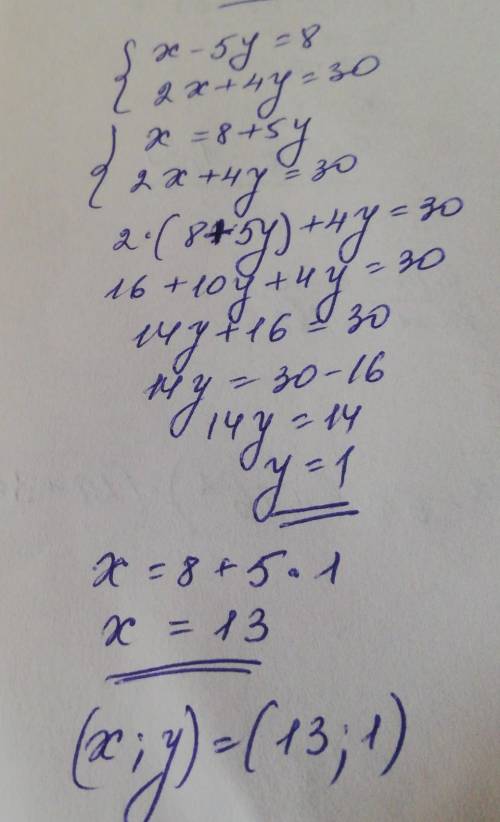 { x - 5y = 8
2x + 4y = 30
{ x = 8 + 5y
2x + 4y = 30
2·(8+5y) + 4y = 30
16 + 10y + 4y = 30
14y + 16 = 30
14y = 30 - 16
14y = 14
y = 1
x = 8 + 5·1
x = 13
(x; y) = (13; 1)